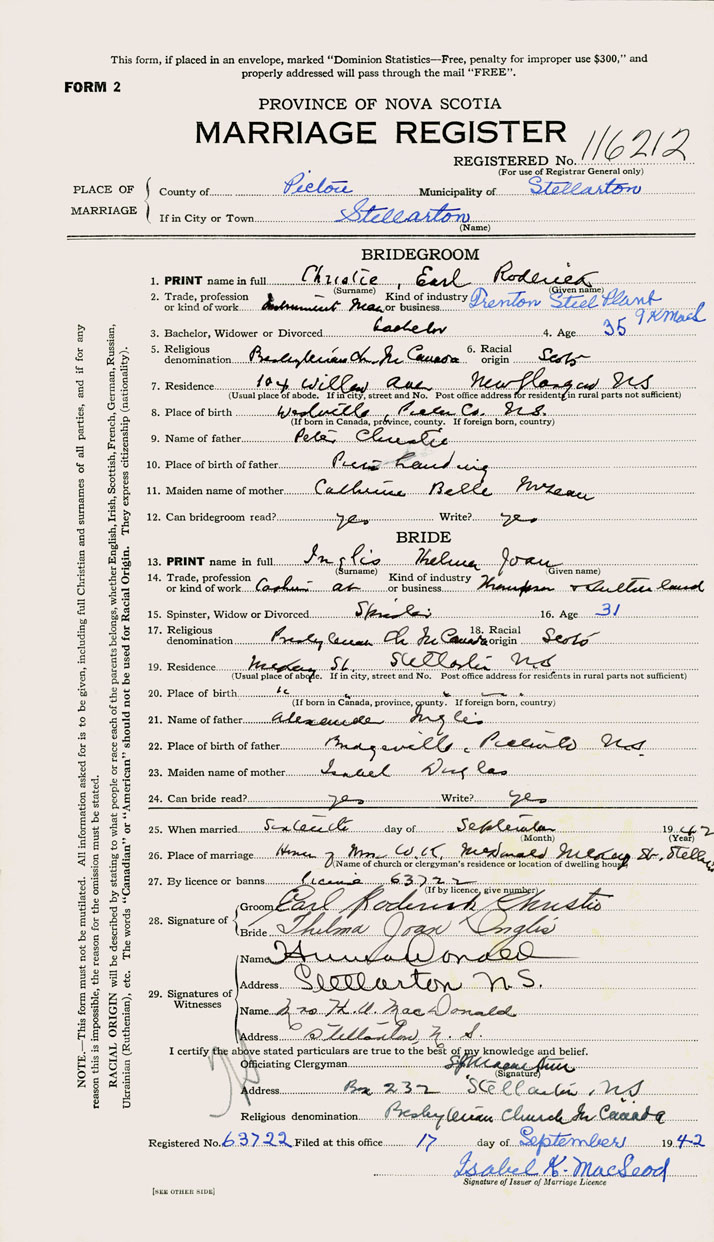 This form, if placed in an envelope, marked "Dominion Statistics—Free, penalty for improper use $300," and
properly addressed will pass through the mail "FREE".
FORM 2
PROVINCE OF NOVA SCOTIA
MARRIAGE REGISTER
REGISTERED No. 116212
(For use of Registrar General only)
PLACE OF MARRIAGE
County of Pictou Municipality of Stellarton
If in City or Town Stellarton
(Name)
BRIDEGROOM
1. PRINT name in full Christie, Earl Roderick
(Surname) (Given name)
2. Trade, profession or kind of work Instrument Man Kind of industry or business Trenton Steel Plant
3. Bachelor, Widower or Divorced bachelor 4. Age 35
5. Religious denomination Presbyterian Ch In Canada 6. Racial origin Scots
7. Residence 104 Willow Ave New Glasgow NS
(Usual place of abode. If in city, street and No. Post office address for residents in rural parts not sufficient)
8. Place of birth Woodville, Pictou Co. N.S.
(If born in Canada, province, county. If foreign born, country)
9. Name of father Peter Christie
10. Place of birth of father Landing
11. Maiden name of mother Catherine Belle McLean
12. Can bridegroom read? yes Write? yes
BRIDE
13. PRINT name in full Inglis Thelma Joan
(Surname) (Given name)
14. Trade, profession or kind of work Cashier at Kind of industry or business Thompson & Sutherland
15. Spinster, Widow or Divorced Spinster 16. Age 31
17. Religious denomination Presbyterian Ch In Canada 18. Racial origin Scots
19. Residence McKay St. Stellarton NS
(Usual place of abode. If in city, street and No. Post office address for residents in rural parts not sufficient)
20. Place of birth
(If born in Canada, province, county. If foreign born, country)
21. Name of father Alexander Inglis
22. Place of birth of father Bridgeville, Pictou Co N.S.
23. Maiden name of mother Isabel Douglas
24. Can bride read? yes Write? yes
25. When married Sixteenth day of September 1942
(Month) (Year)
26. Place of marriage Home of Mrs W.K. McDonald McKay St, Stell
(Name of church or clergyman's residence or location of dwelling house)
27. By licence or banns licence 63722
(If by licence, give number)
28. Signature of
Groom Earl Roderick Christie
Bride Thelma Joan Inglis
29. Signatures of Witnesses
Name
Address Stellarton N.S.
Name Mrs H.U. MacDonald
Address Stellarton, N.S.
I certify the above stated particulars are true to the best of my knowledge and belief.
Officiating Clergyman
(Signature)
Address Box 232 Stellarton, NS
Religious denomination Presbyterian Church In Canada
Registered No. 63722 Filed at this office 17 day of September 1942
Isabel K. MacLeod
Signature of Issuer of Marriage Licence
[SEE OTHER SIDE]
NOTE.—This form must not be mutilated. All information asked for is to be given, including full Christian and surnames of all parties, and if for any
reason this is impossible, the reason for the omission must be stated.
RACIAL ORIGIN will be described by stating to what people or race each of the parents belongs, whether English, Irish, Scottish, French, German, Russian,
Ukrainian (Ruthenian), etc. The words "Canadian" or "American" should not be used for Racial Origin. They express citizenship (nationality).